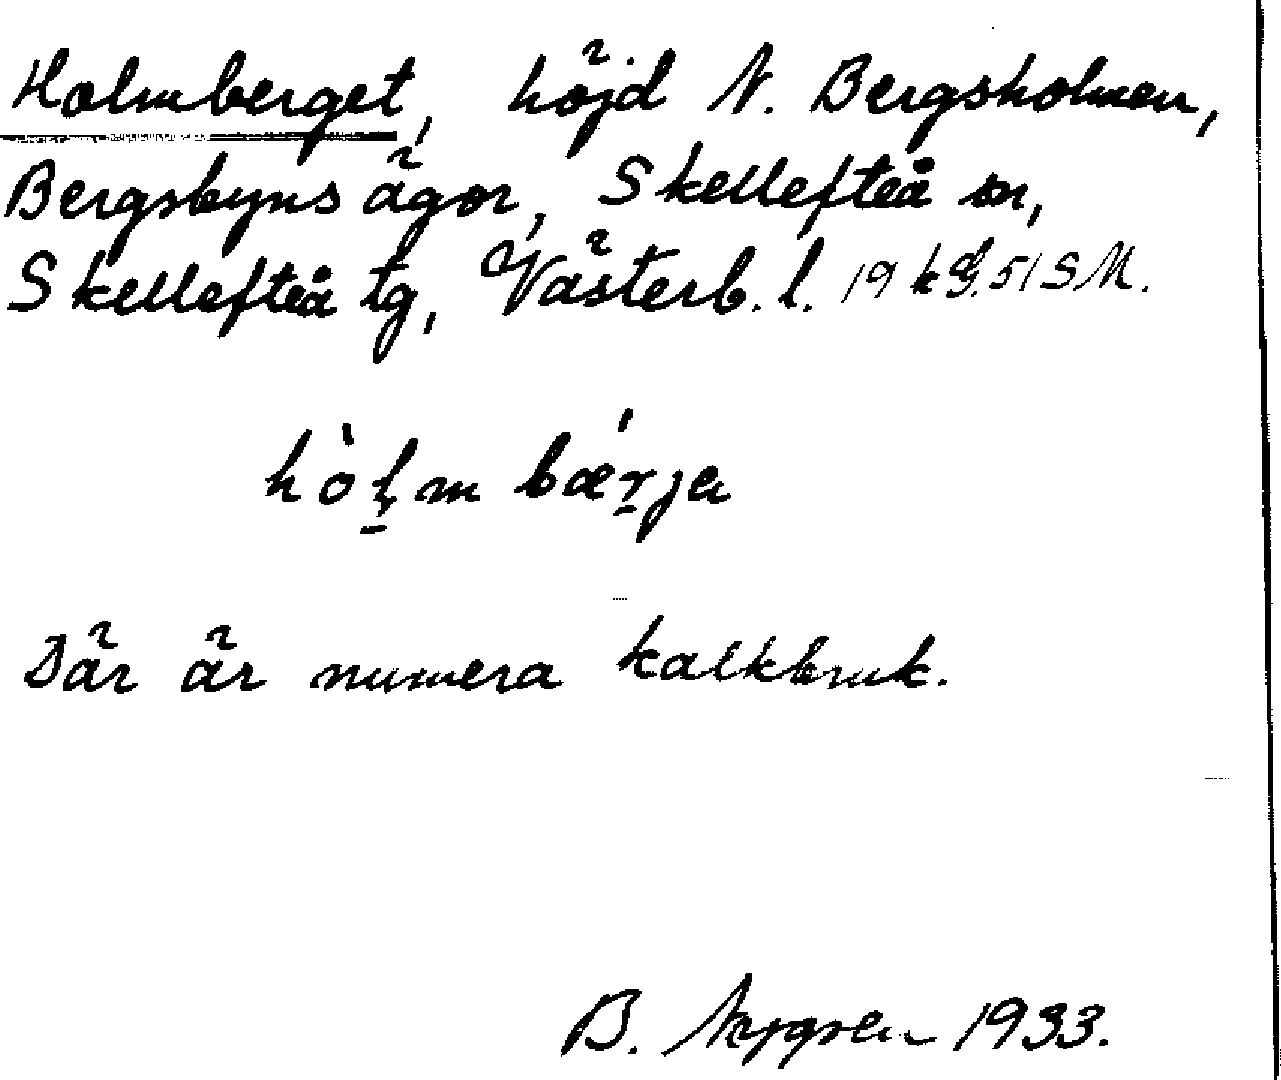 Holmberget, höjd N. Bergsholmen,
Bergsbyns ägor, Skellefteå sn,
Skellefteå tg, Västerb. l. 19 51 SM.
hòḷm bǽr̠ja
Där är numera kalkbruk.
B. Nygren 1933.